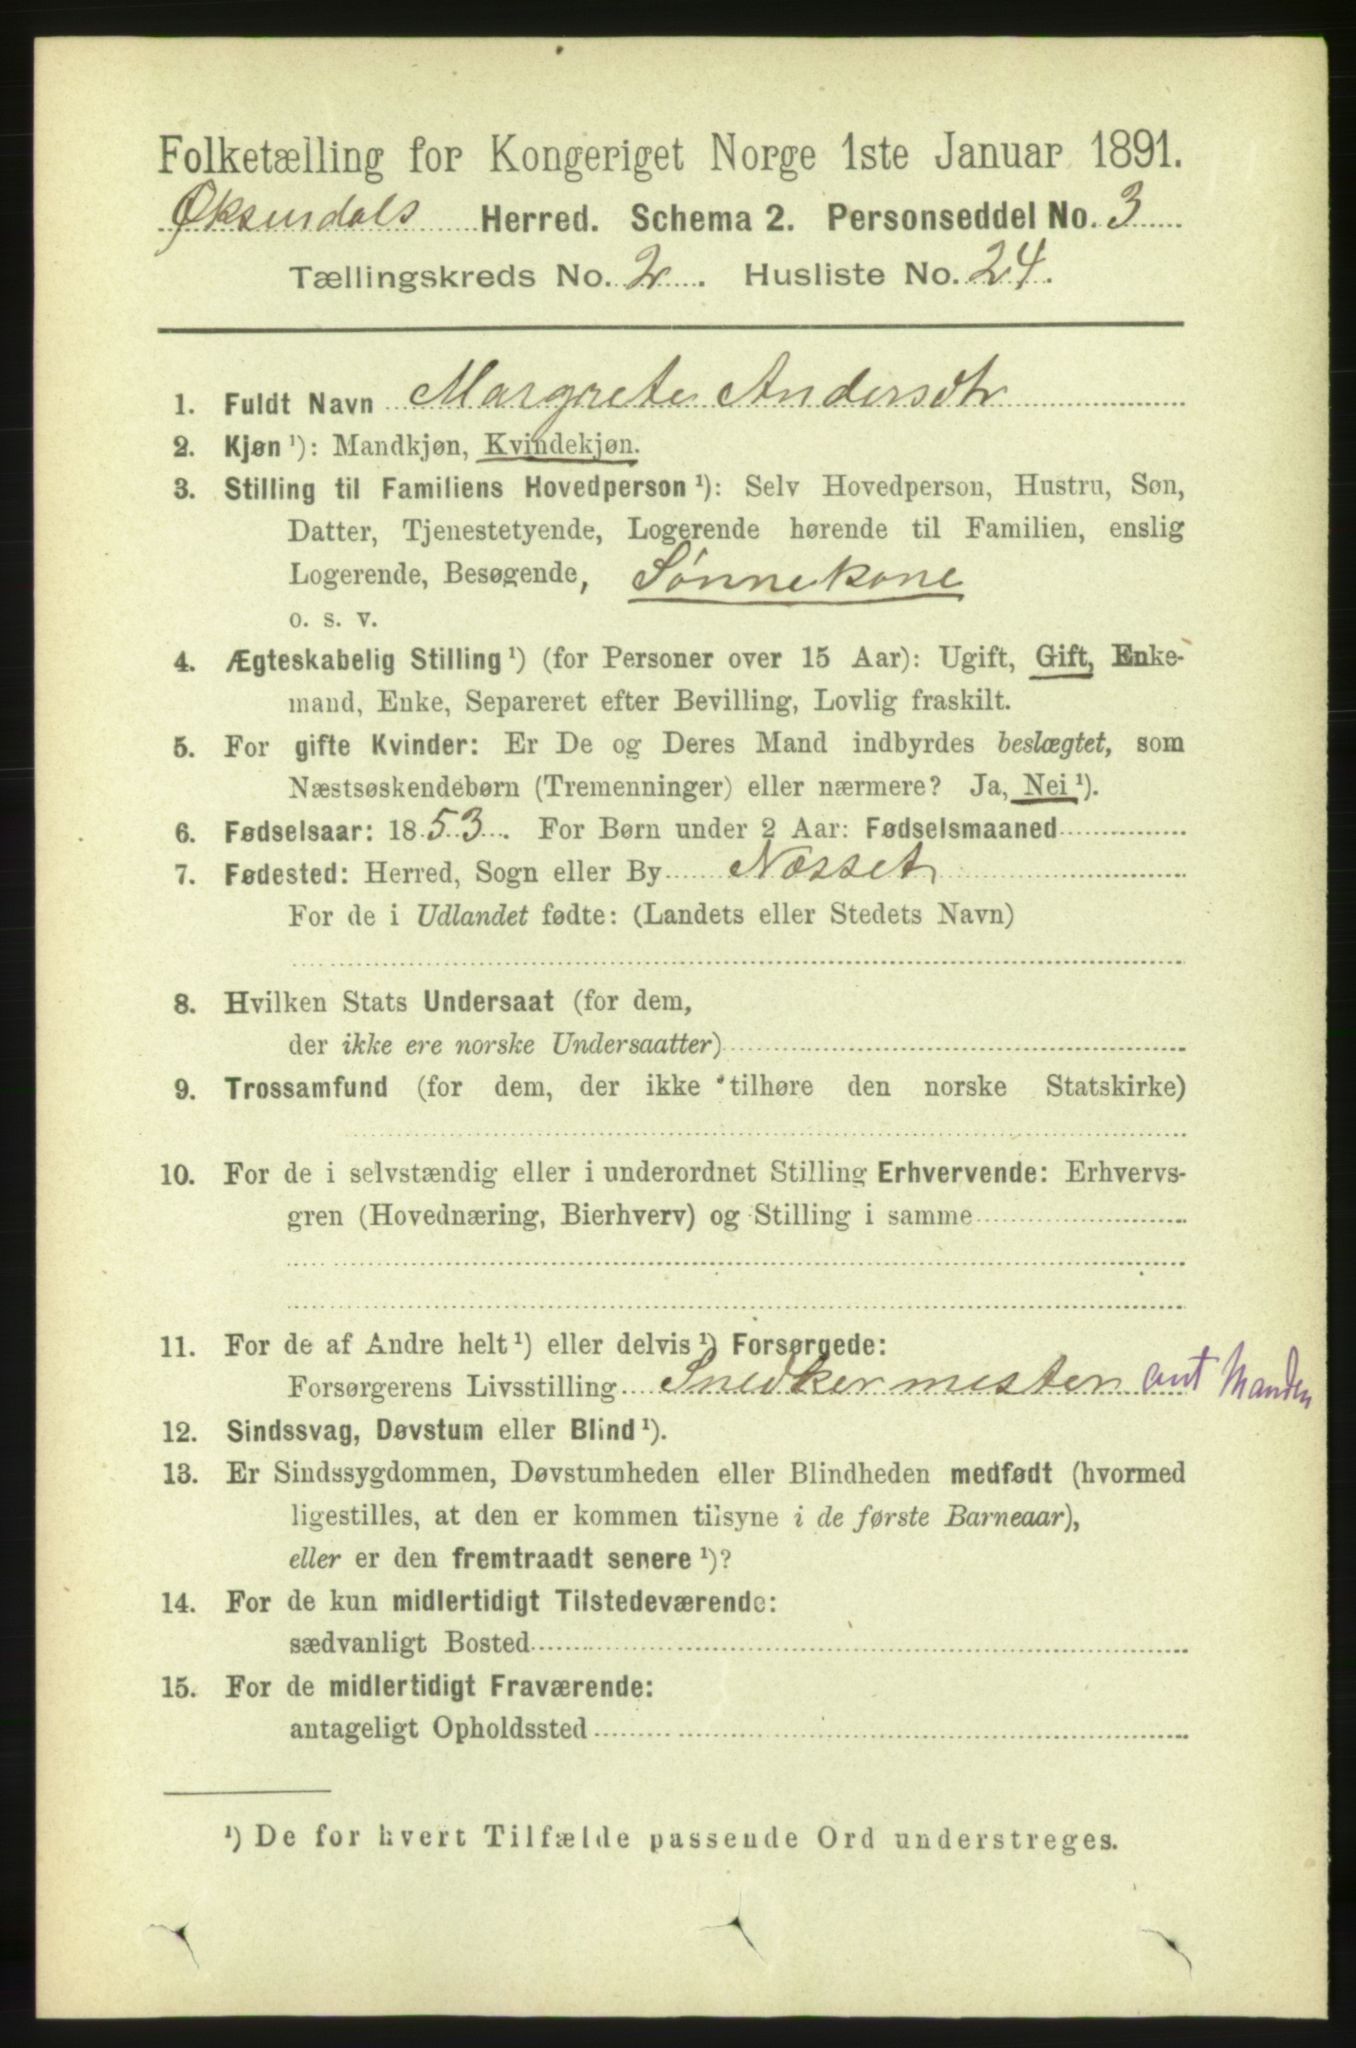 Folketælling for Kongeriget Norge 1ste Januar 1891.
Øksendals Herred. Schema 2. Personseddel No. 3
Tællingskreds No. 2. Husliste No. 24.
1. Fuldt Navn Margrete Andersdtr
2. Kjøn ¹): Mandkjøn, Kvindekjøn.
3. Stilling til Familiens Hovedperson ¹): Selv Hovedperson, Hustru, Søn,
Datter, Tjenestetyende, Logerende hørende til Familien, enslig
Logerende, Besøgende, Sønnekone
o. s. v.
4. Ægteskabelig Stilling ¹) (for Personer over 15 Aar): Ugift, Gift, Enke-
mand, Enke, Separeret efter Bevilling, Lovlig fraskilt.
5. For gifte Kvinder: Er De og Deres Mand indbyrdes beslægtet, som
Næstsøskendebørn (Tremenninger) eller nærmere? Ja, Nei ¹).
6. Fødselsaar: 1853. For Børn under 2 Aar: Fødselsmaaned
7. Fødested: Herred, Sogn eller By Næsset
For de i Udlandet fødte: (Landets eller Stedets Navn)
8. Hvilken Stats Undersaat (for dem,
der ikke ere norske Undersaatter)
9. Trossamfund (for dem, der ikke tilhøre den norske Statskirke)
10. For de i selvstændig eller i underordnet Stilling Erhvervende: Erhvervs-
gren (Hovednæring, Bierhverv) og Stilling i samme
11. For de af Andre helt ¹) eller delvis ¹) Forsørgede:
Forsørgerens Livsstilling Snedkermester ant Manden
12. Sindssvag, Døvstum eller Blind ¹).
13. Er Sindssygdommen, Døvstumheden eller Blindheden medfødt (hvormed
ligestilles, at den er kommen tilsyne i de første Barneaar),
eller er den fremtraadt senere ¹)?
14. For de kun midlertidigt Tilstedeværende:
sædvanligt Bosted
15. For de midlertidigt Fraværende:
antageligt Opholdssted
¹) De for hvert Tilfælde passende Ord understreges.